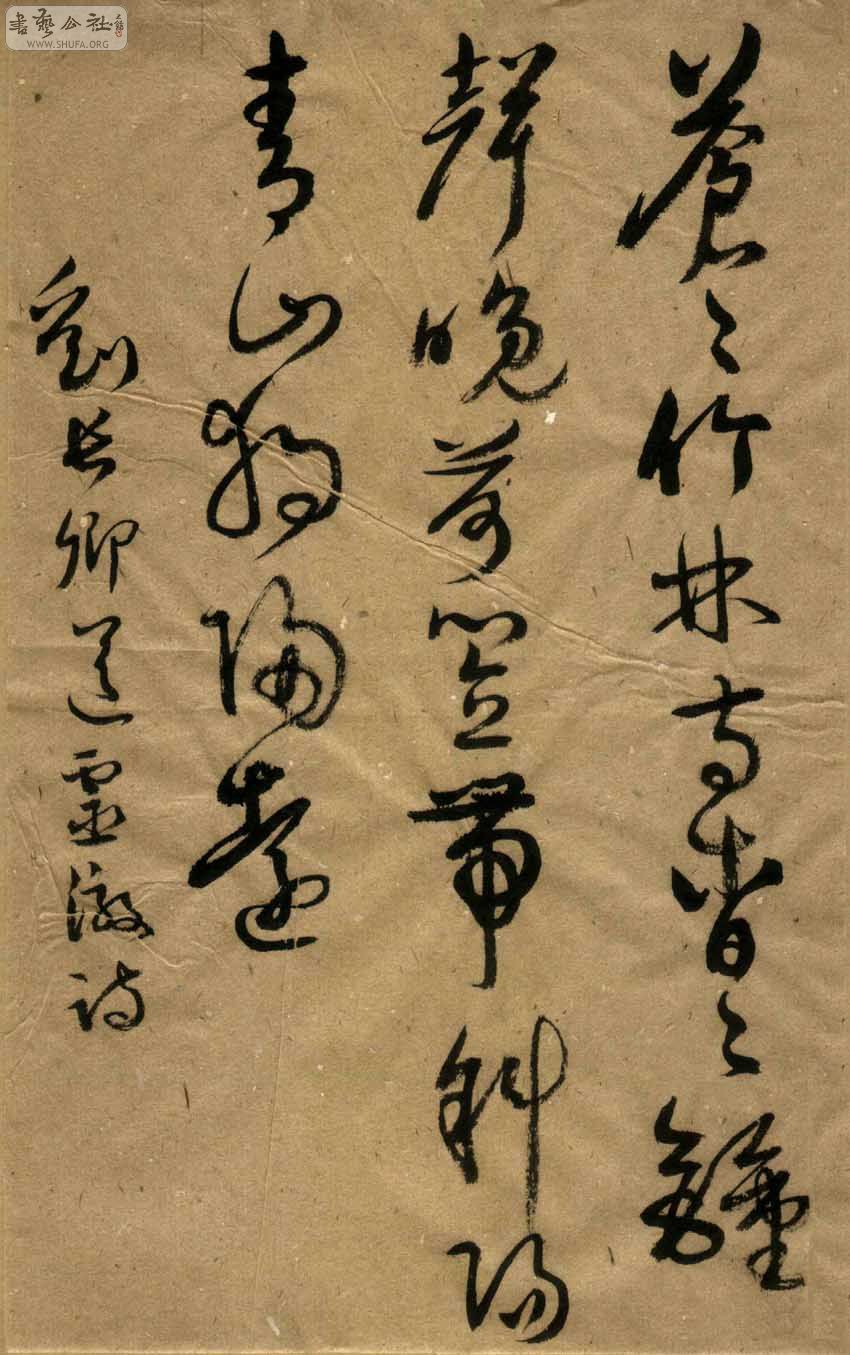 書藝公社
WWW.SHUFA.ORG
蒼〻竹林寺杳〻鐘
聲晚荷笠帶斜陽
青山獨歸遠
劉長卿送靈澈詩